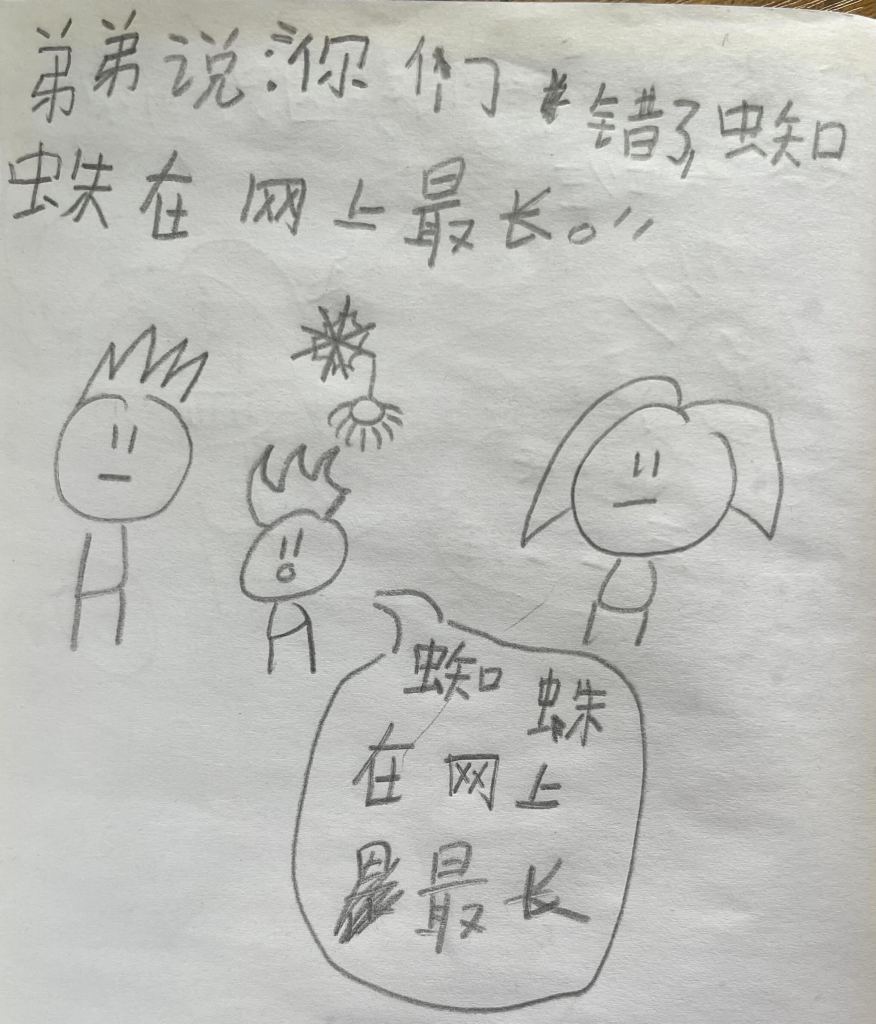 弟弟说:“你们错了蜘
蛛在网上最长。”
蜘蛛
在网上
最长